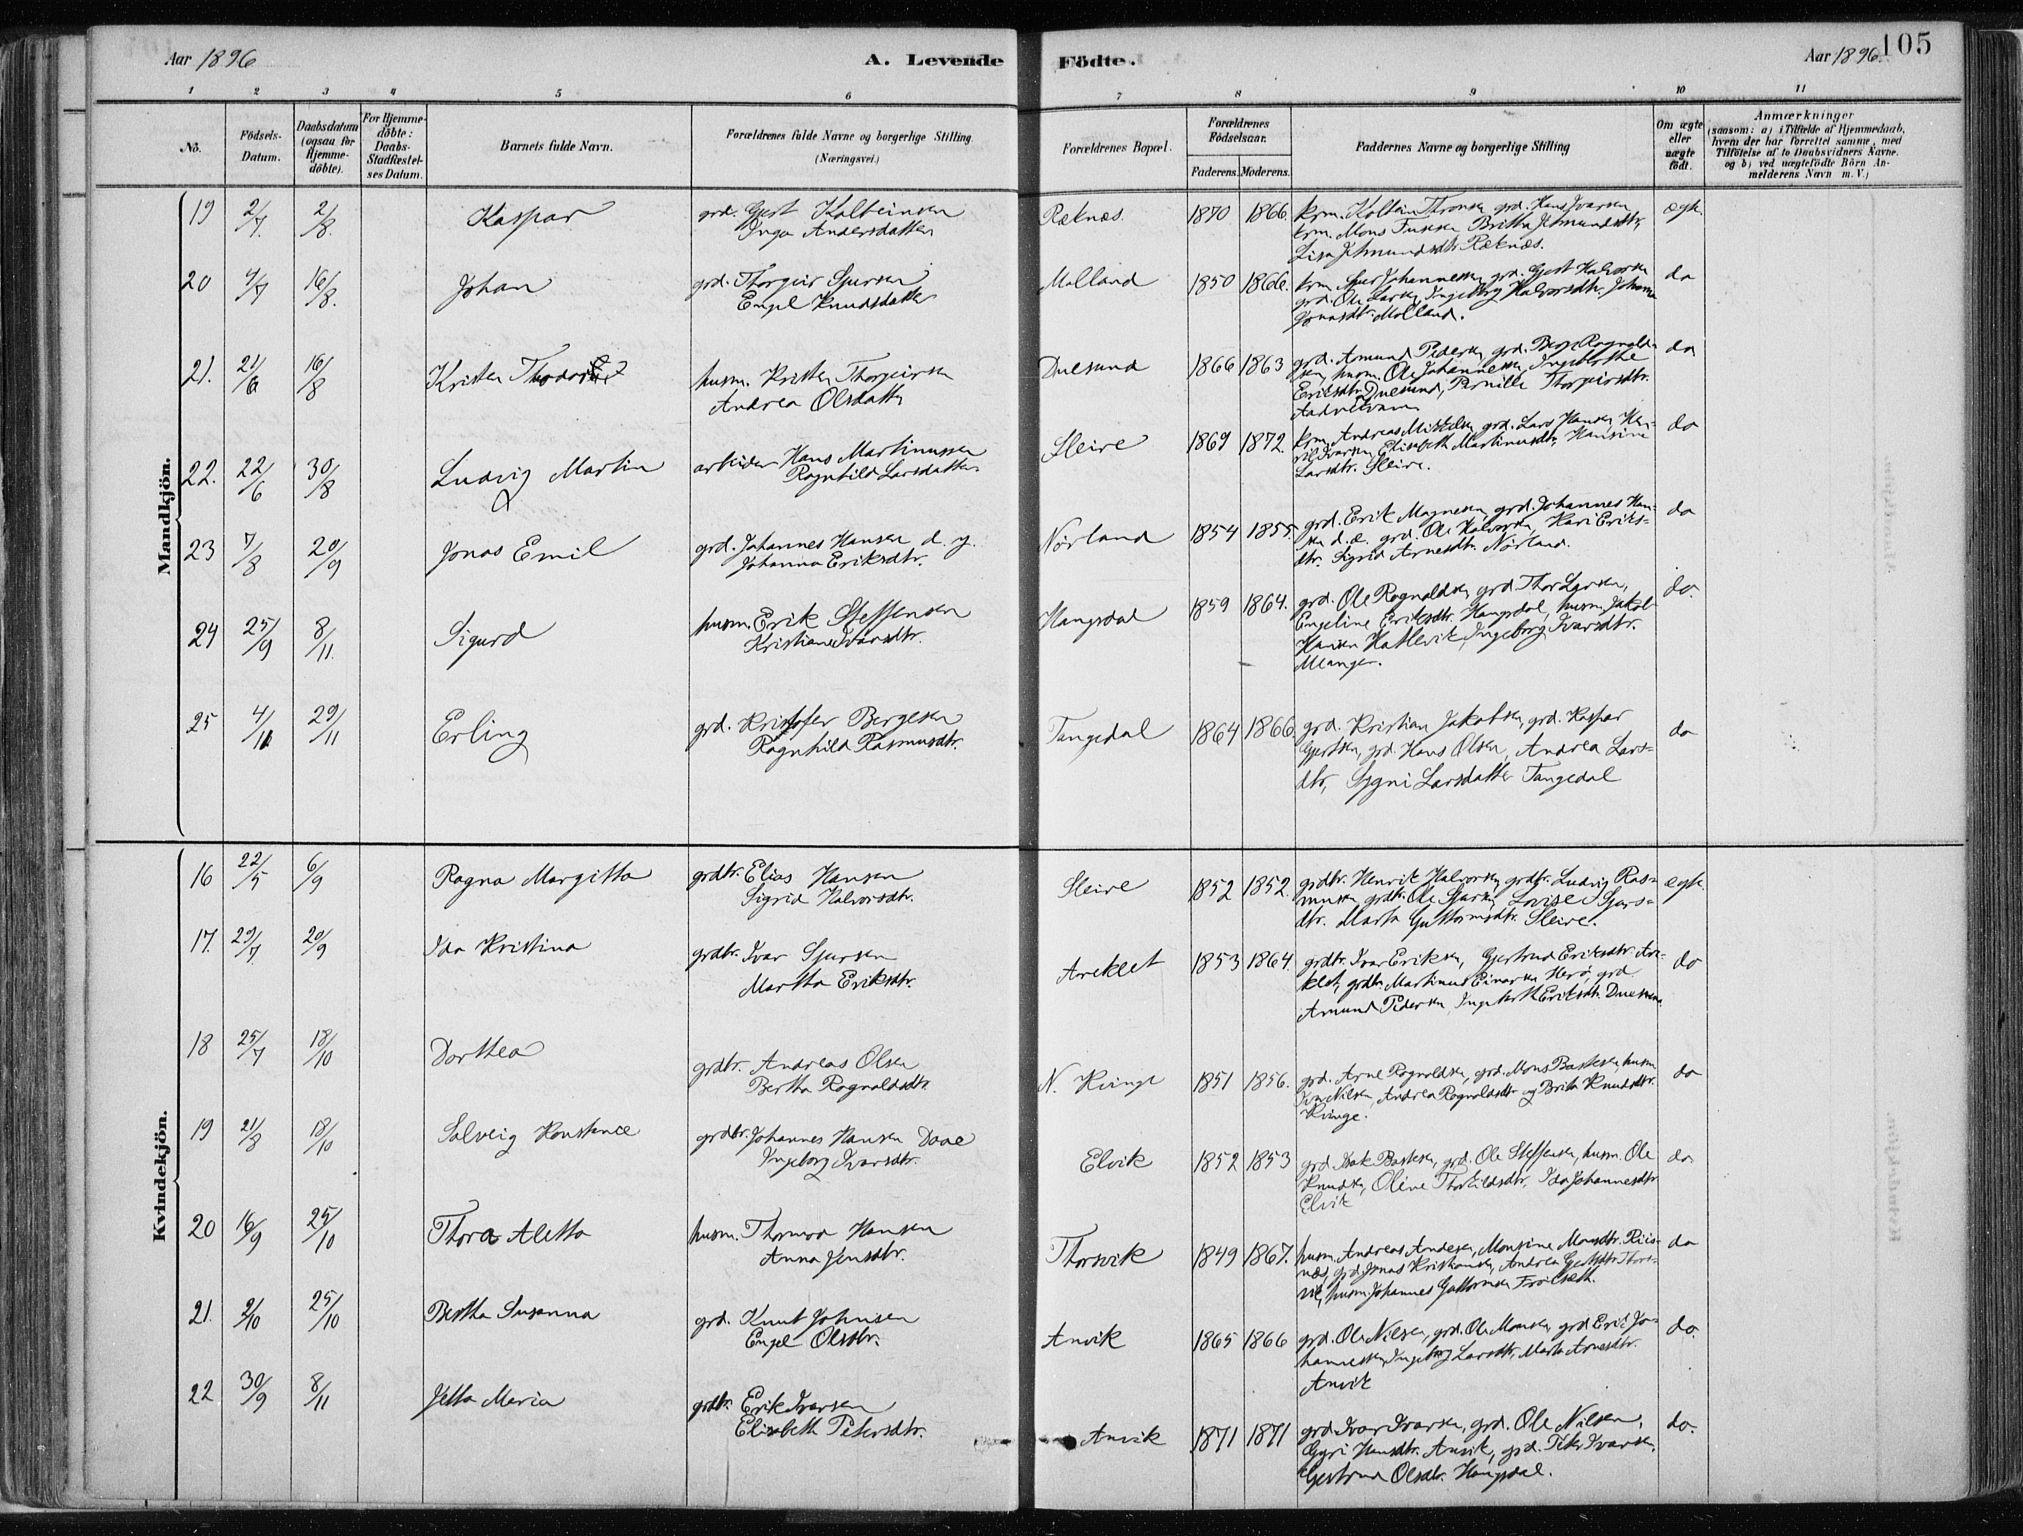 Aar 1896
A. Levende
Födte.
Aar 1896
105
1 2 3 4 5 6 7 8 9 10 11
Nô.
Födsels-
Datum.
Daabsdatum
(ogsaa for
Hjemme-
döbte).
For Hjemme-
döbte:
Daabs-
Stadfæstel-
ses Datum.
Barnets fulde Navn.
Forældrenes fulde Navne og borgerlige Stilling
(Næringsvei.)
Forældrenes Bopæl.
Forældrenes
Födselsaar.
Faderens. Moderens.
Faddernes Navne og borgerlige Stilling
Om ægte
eller
uægte
födt.
Anmærkninger
(saasom: a) i Tilfælde af Hjemmedaab,
hvem der har forrettet samme, med
Tilföielse af to Daabsvidners Navne.
og b) ved uægtefödte Börn An-
melderens Navn m. V.)
Mandkjön.
19 2/7. 2/8. Kaspar grd. Gjert Kolbeinsen
Inga Andersdatter
Reknæs. 1870 1866. krm. Kolbein Thronsen grd. Hans Ivarsen
krm. Mons Britha Jetmundsdtr,
Lisa Jetmundsdtr. Reknæs.
ægte.
20 4/7 16/8. Johan grd. Thorgeir Sjursen
Engel Knudsdatter
Molland 1850 1866. krm Sjur Johannessen, grd. Gjert Halvorsen
grd. Ole Larsen, Ingeborg Halvorsdtr. Johanna
Jonasdtr. Molland.
do
21. 21/6 16/8 Kristen husm. Kristen Thorgeirsen
Andrea Olsdatter
Duesund 1866 1863 grd. Amund Pedersen, grd. Berge Rognald-
sen, husm. Ole Johannessen, Ingeborg
Eriksdtr. Duesund, Pernille Thorgeirsdtr.
do
22. 22/6 30/8 Ludvig Martin arbeider Hans Martinussen
Ragnhild Larsdatter
Sleire 1869 1872. krm. Andreas Mikkelsen grd. Lars Hansen, Hen-
rik Ivarsen, Elisabeth Martinusdtr. Hansine
Larsdtr. Sleire.
do
23 7/8 20/9 Jonas Emil grd. Johannes Hansen d. y.
Johanna Eriksdtr.
Nörland 1854 1855. grd. Erik Magnesen, grd. Johannes Han-
sen d. æ. grd. Ole Halvorsen, Kari Eriks-
dtr. Sigrid Arnesdtr. Nörland.
do
24 25/9 8/11. Sigurd husm. Erik Steffensen
Kristiane Ivarsdtr.
Haugsdal 1859 1864. grd. Ole Rognaldsen, grd. Thor Larsen,
Engeline Eriksdtr. Haugsdal, husm. Jakob
Hansen Katlevik, Ingeborg Ivarsdtr.
Mcanger.
do.
25 4/11 29/11 Erling grd. Kristofer Bergesen
Ragnhild Rasmusdtr.
Tangedal 1864 1866. grd. Kristian Jakobsen, grd. Kaspar
Gjertsen, grd. Hans Olsen, Andrea Lars-
dtr, Sygni Larsdatter Tangedal
do
Kvindekjön.
16 22/5 6/9 Ragna Margitta grdbr. Elias Hansen
Sigrid Halvorsdtr.
Sleire 1852 1852. grdbr. Henrik Halvorsen, grdbr. Ludvig Ras-
mussen grdbr. Ole Sjursen, Lovise Sjurs-
dtr. Marta Guttormsdtr. Sleire.
ægte.
17. 29/7 20/9 Ida Kristina grdbr. Ivar Sjursen
Martha Eriksdtr.
Areklet 1853 1864. grdbr. Ivar Eriksen, Gjertrud Eriksdtr. Are-
klet, grdbr. Martinus Einarsen Herö, grd.
Amund Pedersen, Ingeborg Eriksdtr. Duesund
do
18 25/7 18/10 Dorthea grdbr. Andreas Olsen
Bertha Rognaldsdtr.
N. Kvinge 1851 1856. grd. Arne Rognaldsen, grd. Mons Bastesen, husm
Nilsen, Andrea Rognaldsdtr og Brita Knudsdtr.
Kvinge.
do
19 21/8 18/10 Solveig Konstance grdbr. Johannes Hansen Daae
Ingeborg Ivarsdtr.
Elvik 1852 1853 grd. Isak Bastesen, grd. Ole Steffensen, husm. Ole
Knudsen, Oline Thorkildsdtr, Ida Johannesdtr
Elvik
do
20 16/9 25/10 Thora Aletta husm. Thormod Hansen
Anna Jensdtr.
Thorsvik 1849 1867. husm. Andreas Andersen, Monsine Monsdtr. Riis-
næs, grd. Jonas Kristiansen, Andrea Gjertsdtr Thors-
vik, husm. Johannes Guttormsen Fröiseth.
do
21. 2/10 25/10 Bertha Susanna grd. Knut Johnsen
Engel Olsdtr.
Anvik 1865 1866 grd. Ole Nilsen, grd. Ole Monsen, grd Erik Jo-
hannessen, Ingeborg Larsdtr, Marta Arnesdtr.
Anvik
do.
22 30/9 8/11 Jetta Maria grdbr. Erik Ivarsen
Elisabeth Petersdtr.
Anvik 1871 1871 grd Ivar Ivarsen, grd. Ole Nilsen,
Gyri Hansdtr. Anvik, grd. Peter Ivarsen,
Gjertrud Olsdtr. Haugsdal.
do.